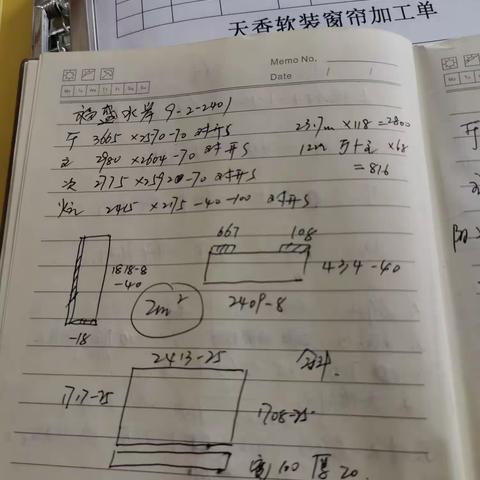 天香软装窗帘加工单
Memo No.
Date / /
Mo Tu We Th Fr Sa Su
福盛水岸 9-2-2401
厅 3665 × 2570 -70 对开S
23.7m × 118 = 2800
主 2980 × 2604 -70 对开S
12m 厅+主 × 68
次 2775 × 2592 -70 对开S
= 816
2465 × 2175 -40 -100 对开S
667
108
1818-8
-40
434-40
2m²
2409-8
-18
2413-25
1717-25
1708-25
宽100 厚20.